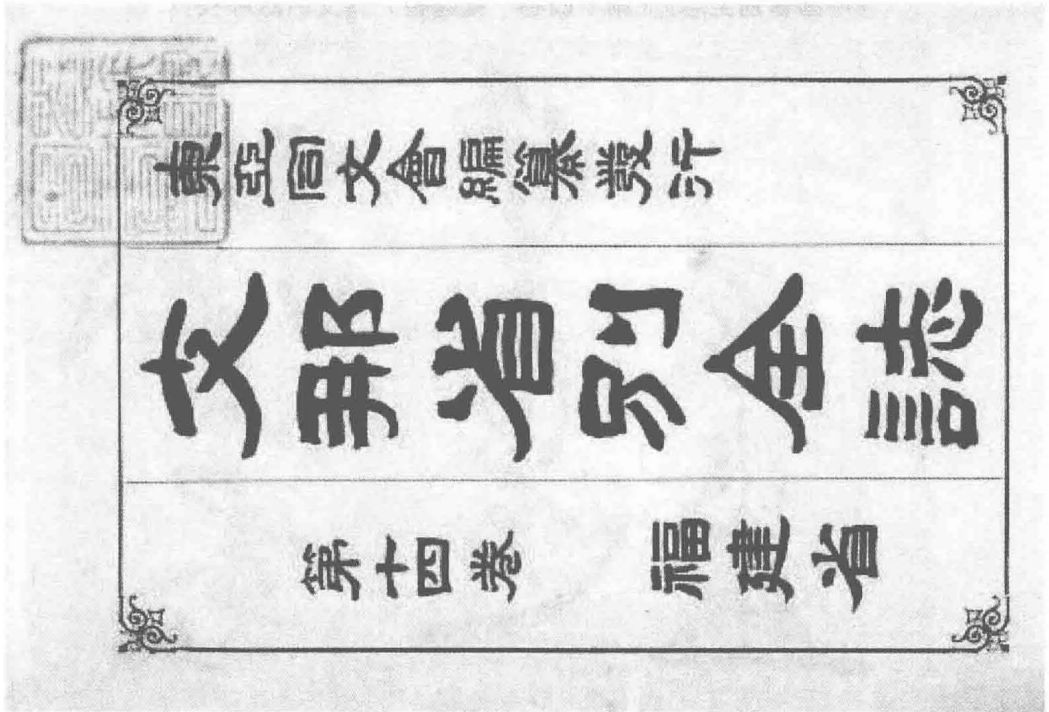 東亞同文會編纂發行
支那省別全誌
第十四卷 福建省